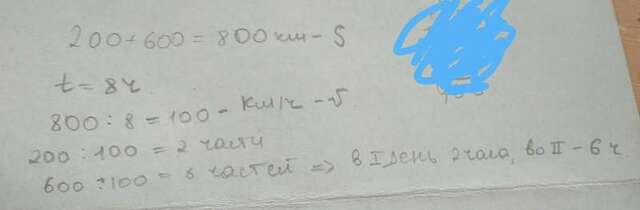 200+600=800км-S
t=8ч
800:8=100-км/ч-v
200:100=2 части
600:100=6 частей => в I день 2 часа, во II-6ч